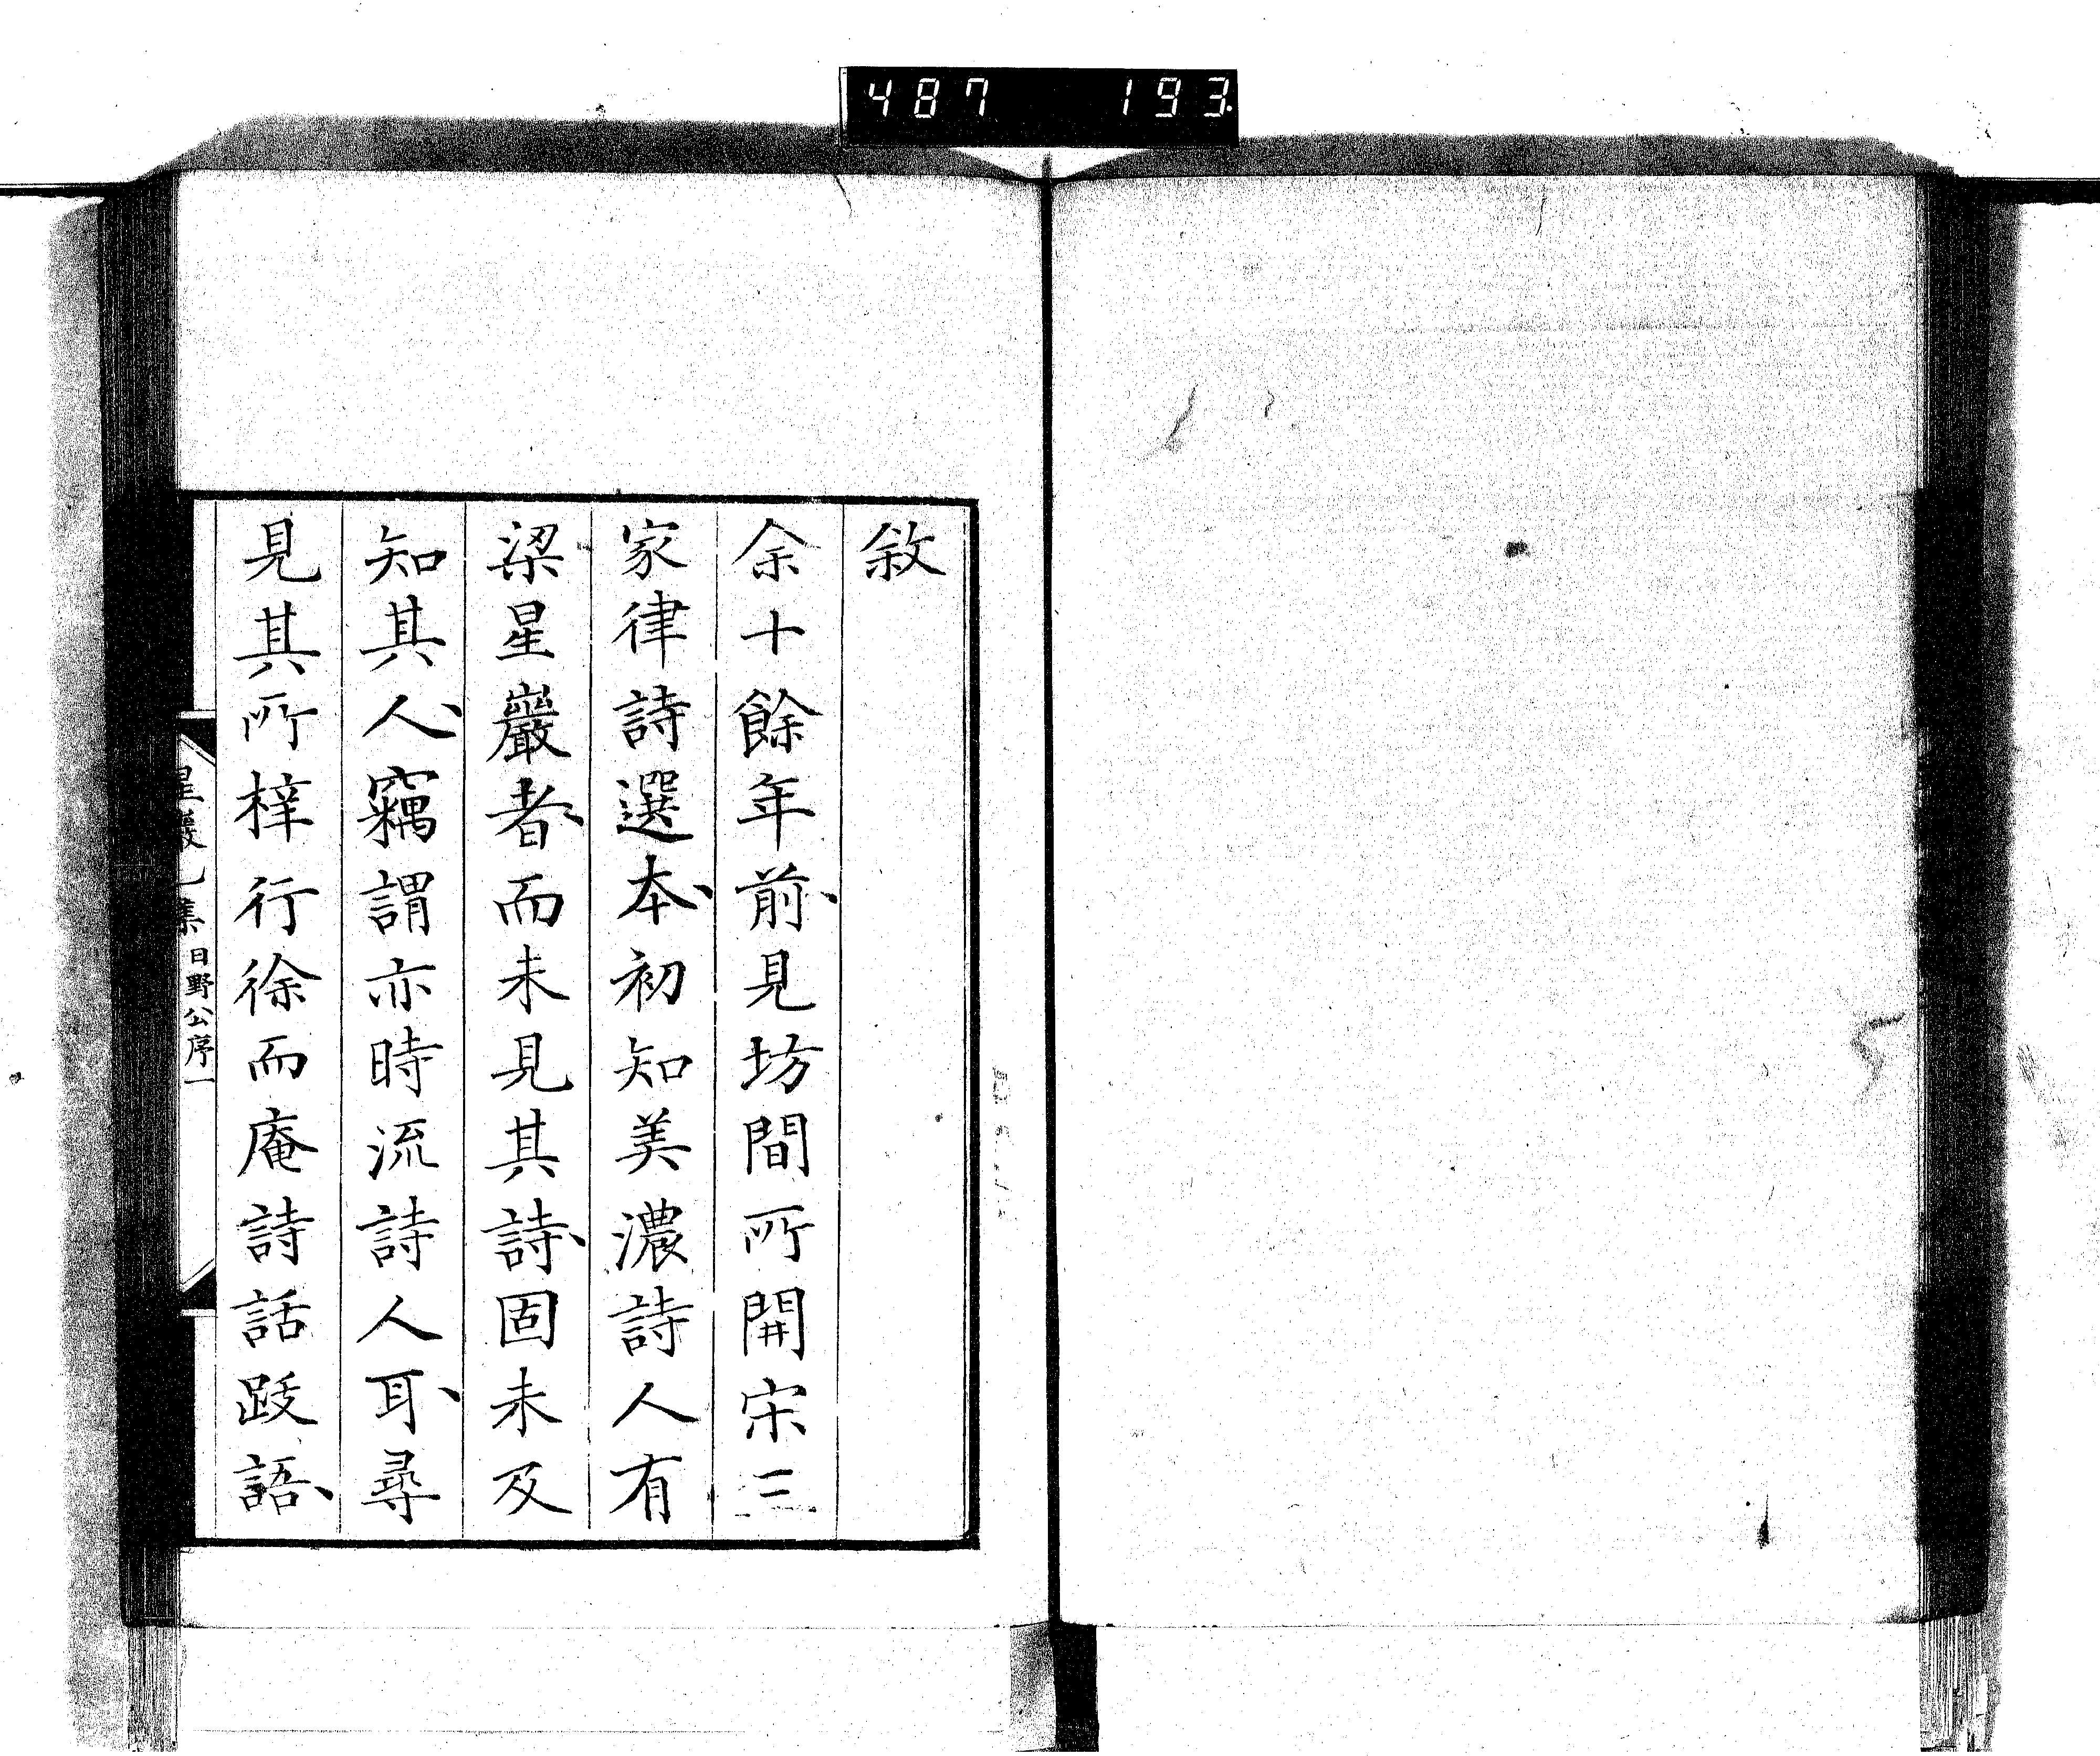 487 193
敘
余十餘年前、見坊間所開宋三
家律詩選本、初知美濃詩人有
梁星巖者、而未見其詩、固未及
知其人、竊謂亦時流詩人耳、尋
見其所梓行徐而庵詩話跋語、
星巖乙集 日野公序一